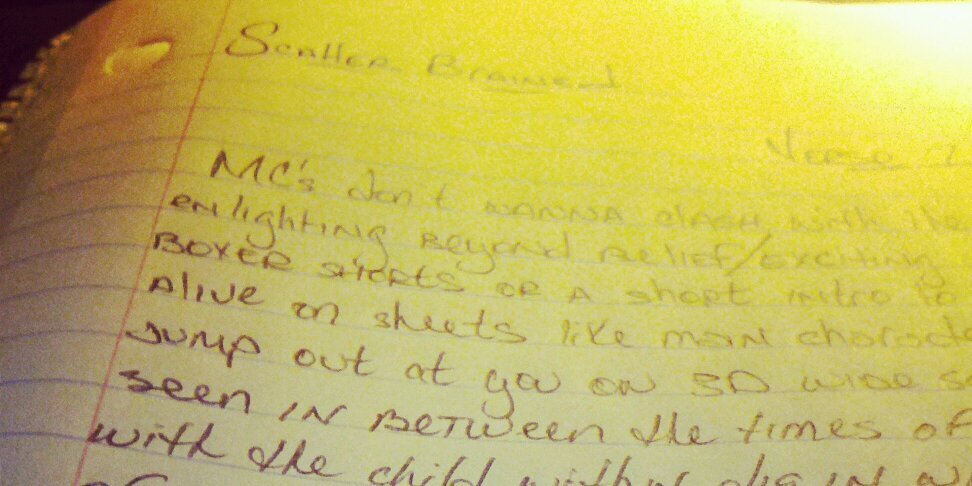 Scatter Brained
Verse
MC's don't wanna clash with the
enlighting beyond relief/exciting
BOXER shorts or a short intro to
Alive on sheets like main
Jump out at you on 3D wide
seen in BETWEEN the times of
with the child within